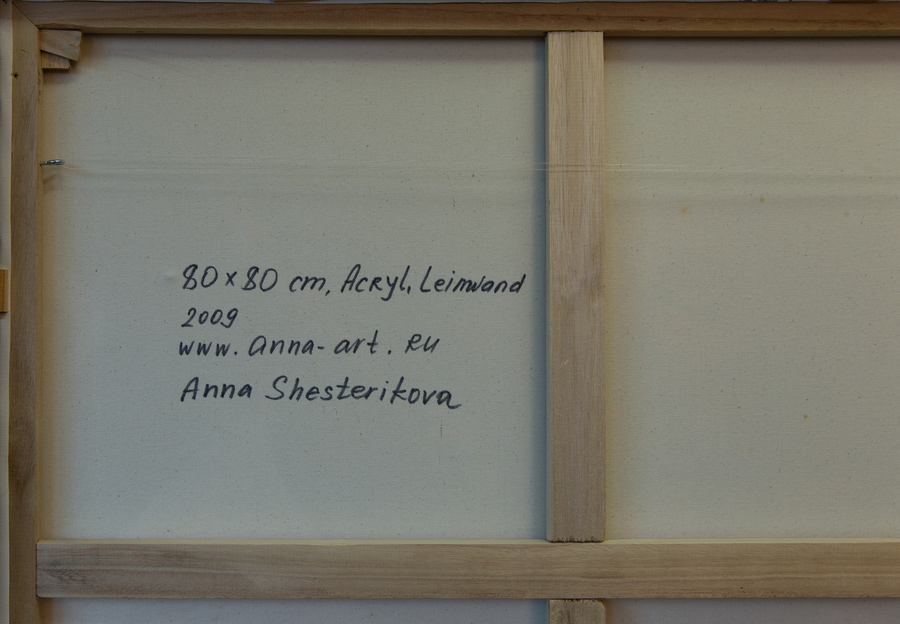 80 x 80 cm, Acryl, Leinwand
2009
www. anna-art. ru
Anna Shesterikova